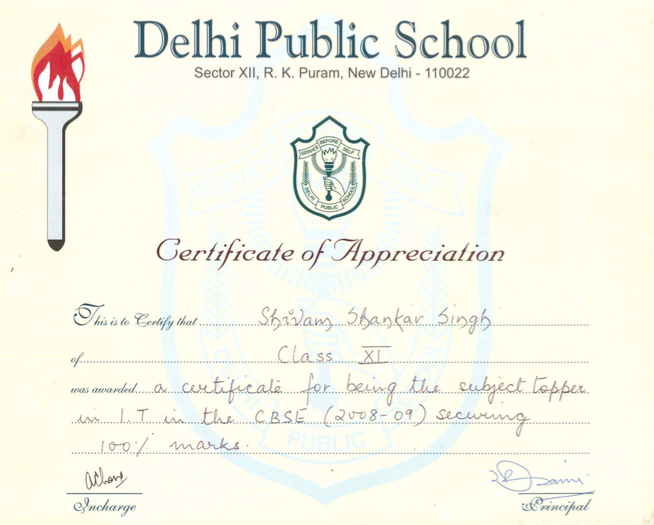 Delhi Public School
Sector XII, R. K. Puram, New Delhi - 110022
SERVICE BEFORE SELF
DELHI PUBLIC SCHOOL
Certificate of Appreciation
This is to Certify that Shivam Shankar Singh
of Class XI
was awarded a certificate for being the subject topper
in I.T in the CBSE (2008-09) securing
100% marks.
Incharge Principal